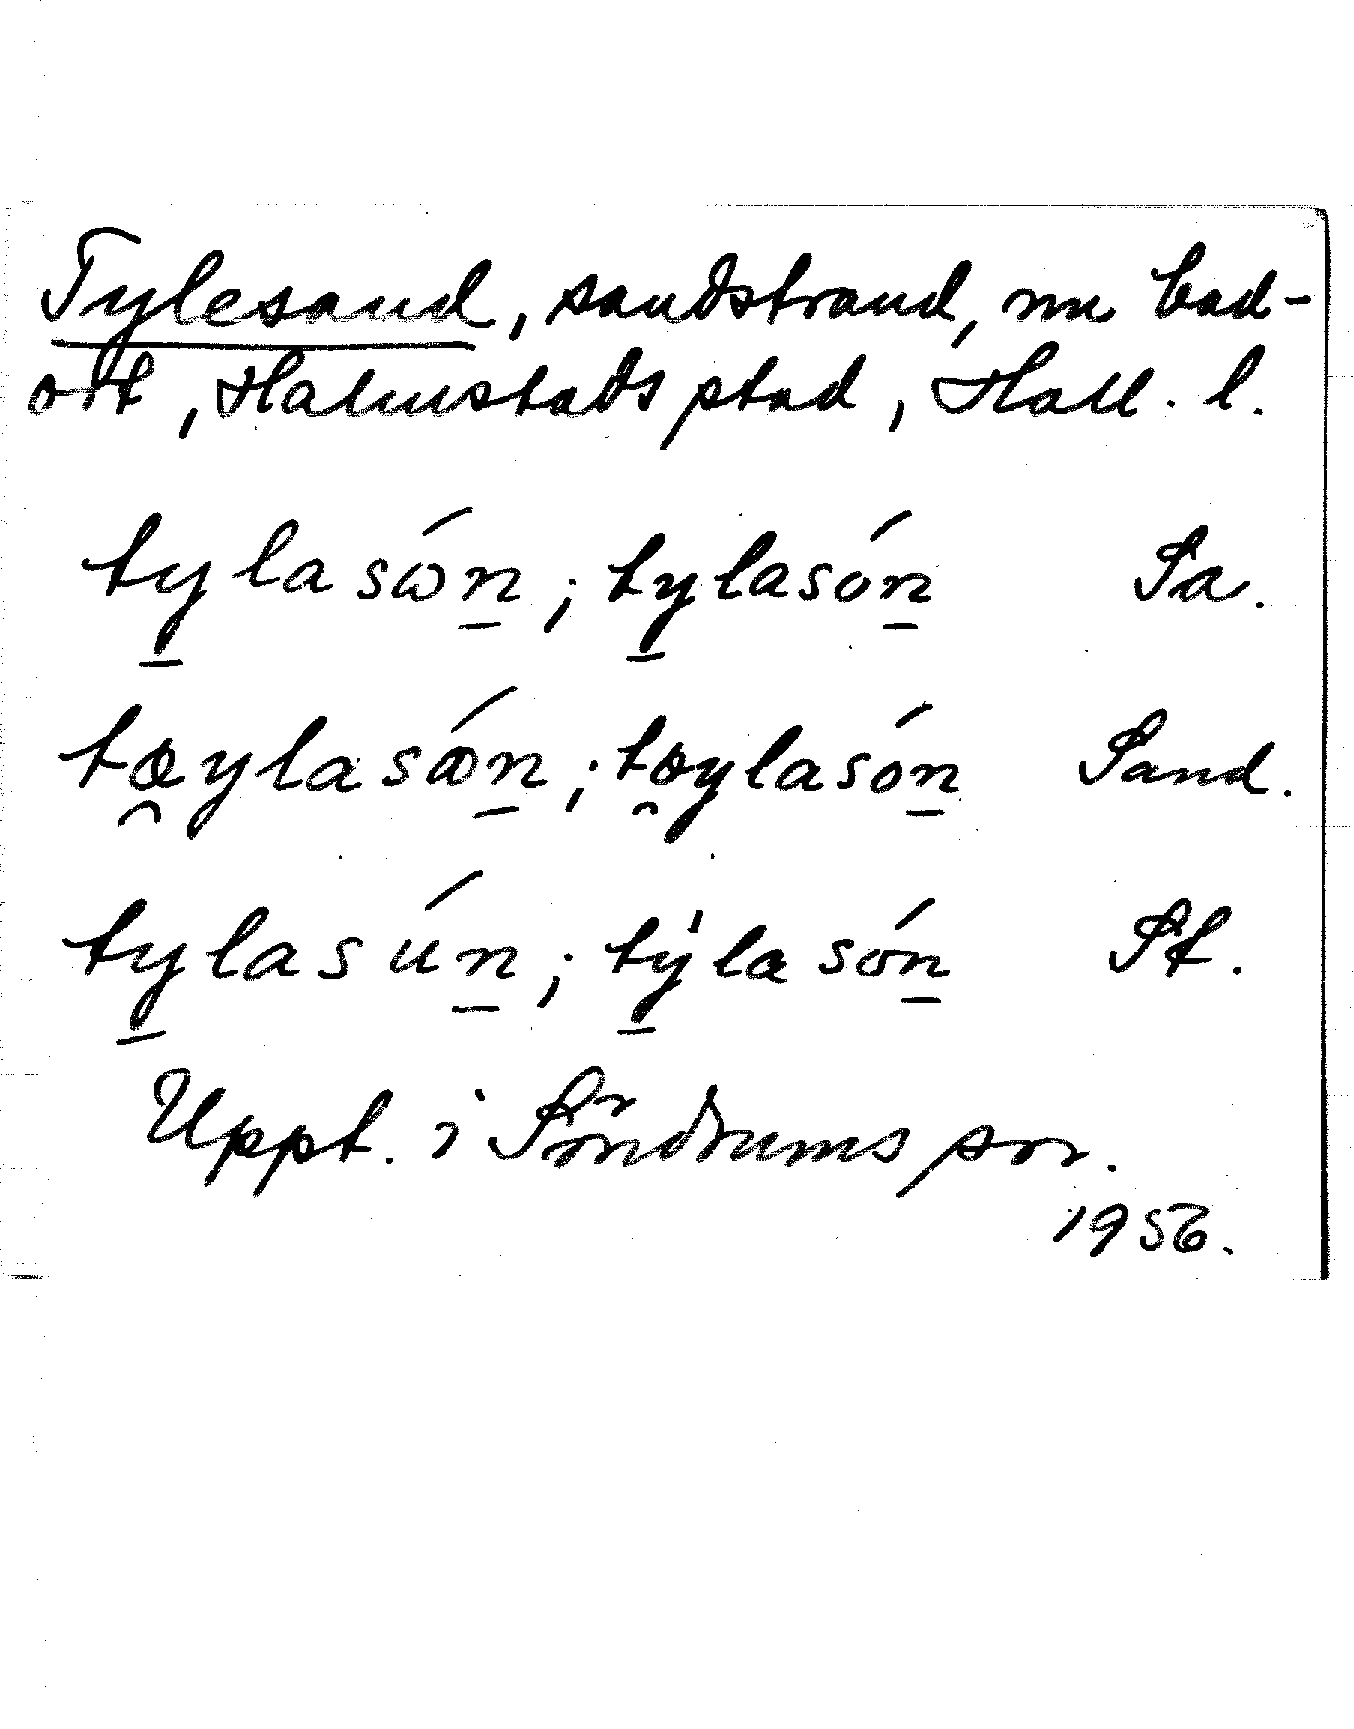 Tylesand, sandstrand, nu bad-
ort, Halmstads stad, Hall. l.
tylasώn; tylasón Sa.
tœylasǿn; tœylasón Sand.
tylasún; tẏlasón St.
Uppt. i Söndrums sn.
1956.